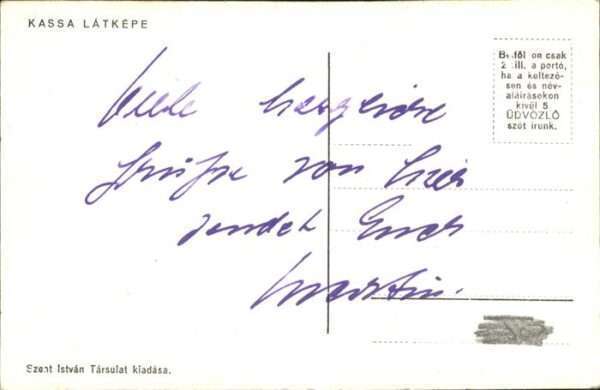 KASSA LÁTKÉPE
Belföldön csak
2 fill. a portó,
ha a keltezé-
sen és név-
aláírásokon
kívül 5
ÜDVÖZLŐ
szót írunk.
Viele herzliche
Grüße von hier
sendet Euch
Martin.
Szent István Társulat kiadása.